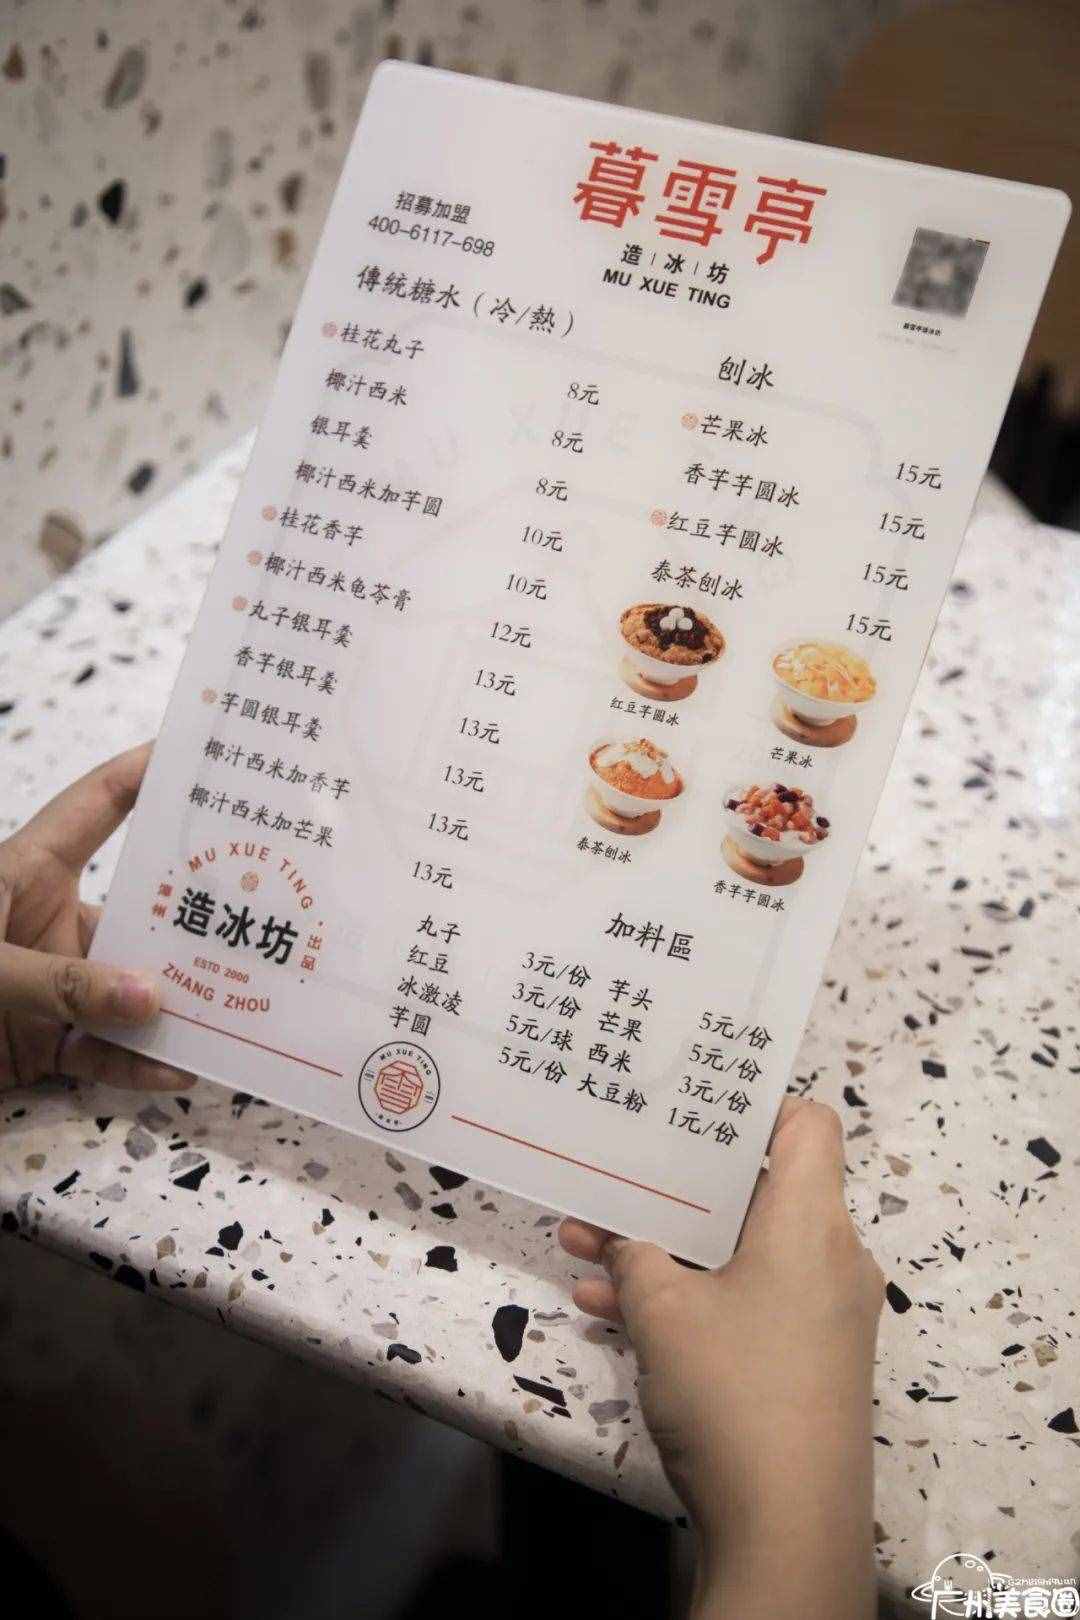 暮雪亭
造 | 冰 | 坊
MU XUE TING
招募加盟
400-6117-698
傳統糖水（冷/熱）
桂花丸子 8元
椰汁西米 8元
银耳羹 8元
椰汁西米加芋圆 10元
桂花香芋 10元
椰汁西米龟苓膏 12元
丸子银耳羹 13元
香芋银耳羹 13元
芋圆银耳羹 13元
椰汁西米加香芋 13元
椰汁西米加芒果 13元
刨冰
芒果冰 15元
香芋芋圆冰 15元
红豆芋圆冰 15元
泰茶刨冰 15元
红豆芋圆冰
芒果冰
泰茶刨冰
香芋芋圆冰
加料區
丸子 3元/份 芋头 5元/份
红豆 3元/份 芒果 5元/份
冰激凌 5元/球 西米 3元/份
芋圆 5元/份 大豆粉 1元/份
MU XUE TING
造冰坊
出品
ESTD 2000
ZHANG ZHOU
MU XUE TING
雪
Gzmeishiquan
广州美食圈